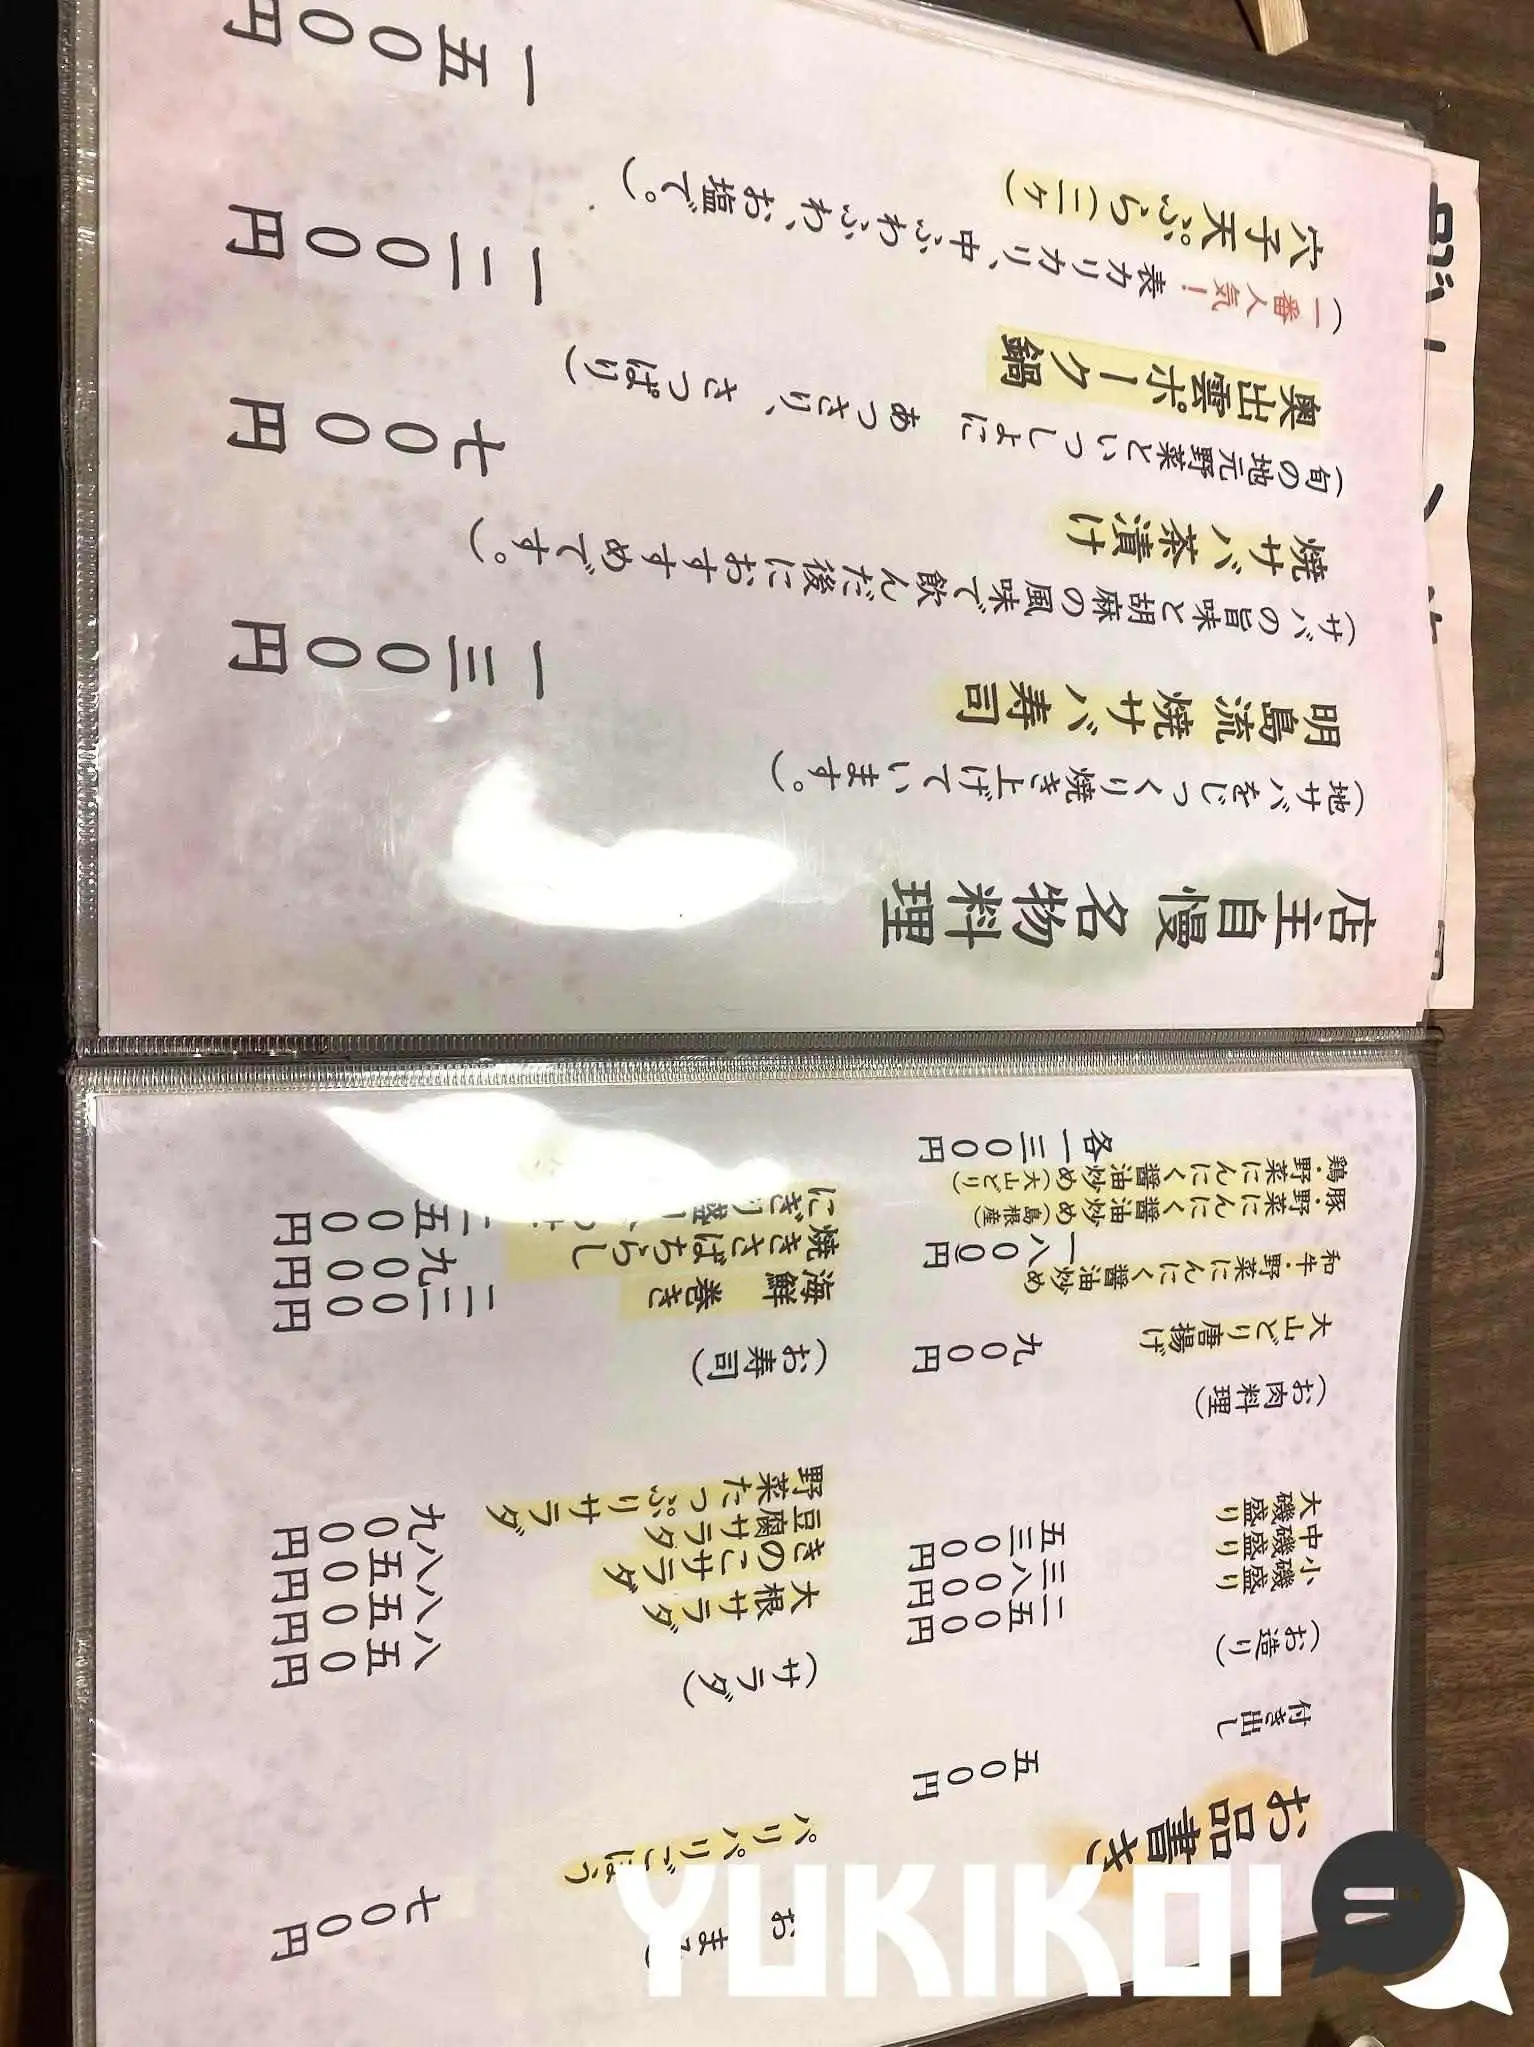 お品書き
付き出し 五〇〇円
(お造り)
小磯盛り 二五〇〇円
中磯盛り 三八〇〇円
大磯盛り 五三〇〇円
(お肉料理)
大山どり唐揚げ 九〇〇円
和牛・野菜にんにく醤油炒め 一八〇〇円
豚・野菜にんにく醤油炒め(島根産)
鶏・野菜にんにく醤油炒め(大山どり)
各一三〇〇円
パリパリごぼう 七〇〇円
(サラダ)
大根サラダ 八五〇円
きのこサラダ 八五〇円
豆腐サラダ 八五〇円
野菜たっぷりサラダ 九〇〇円
(お寿司)
海鮮巻き 二二〇〇円
焼きさばちらし 九〇〇円
にぎり盛り
店主自慢 名物料理
明島流焼サバ寿司 一三〇〇円
(地サバをじっくり焼き上げています。)
焼サバ茶漬け 七〇〇円
(サバの旨味と胡麻の風味で飲んだ後におすすめです。)
奥出雲ポーク鍋 一二〇〇円
(旬の地元野菜といっしょに あっさり、さっぱり)
穴子天ぷら(二ヶ) 一五〇〇円
(一番人気!表カリカリ、中ふわふわ、お塩で。)
YUKIKOI